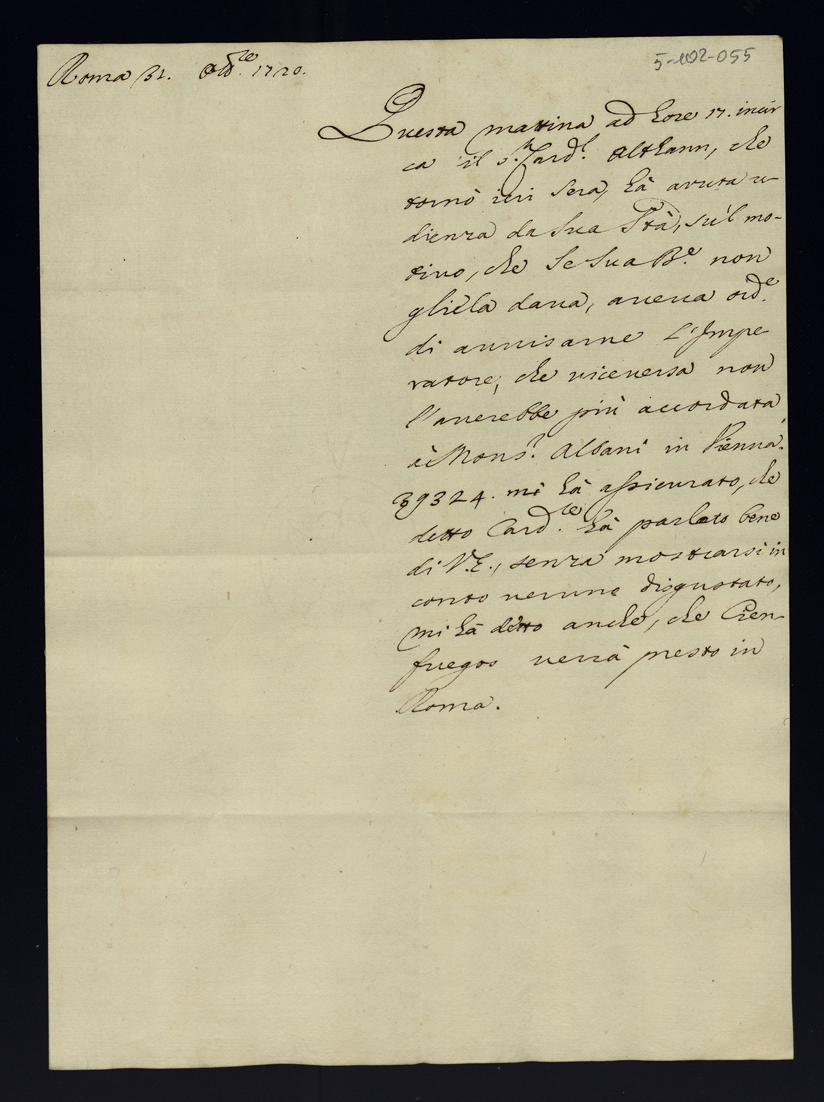 Roma 31. Ott.re 1720.
5-102-055
Questa mattina ad hore 17. incir
ca il S.r Card.l Althann, che
tornò ieri sera, hà avuta u-
dienza da Sua S.tà, su'l mo-
tivo, che se Sua B.e non
gliela dava, aveva ord.e
di avvisarne l'Impe-
ratore, che viceversa non
l'averebbe più accordata
à Mons.r Albani in Vienna.
39324. mi hà assicurato, che
detto Card.le hà parlato bene
di V.E., senza mostrarsi in
conto veruno disgustato,
mi hà detto anche, che Cien-
fuegos verrà presto in
Roma.